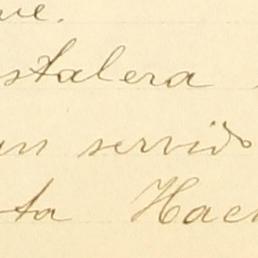 ue.
stalera
un servido
ta Hac